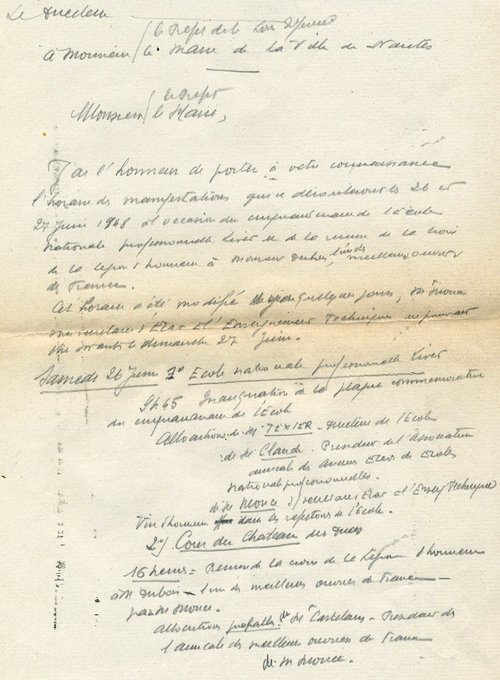 Le Directeur
le Préfet de la Loire Inférieure
à Monsieur le Maire de la Ville de Nantes
le Préfet
Monsieur le Maire,
J'ai l'honneur de porter à votre connaissance
l'horaire des manifestations qui se dérouleront les 26 et
27 Juin 1948 à l'occasion du cinquantenaire de l'école
Nationale professionnelle Livet et de la remise de la croix
de la légion d'honneur à Monsieur Dubois, l'un des meilleurs ouvriers
de France.
Cet horaire a été modifié quelques jours, Mr Morice
secrétaire d'Etat à l'Enseignement Technique ne pouvant
être à Nantes le dimanche 27 Juin.
Samedi 26 Juin 1° Ecole nationale professionnelle Livet
9h45 Inauguration de la plaque commémorative
du cinquantenaire de l'Ecole
Allocutions de Mr TEXIER - Directeur de l'Ecole
de Mr Claude - Président de l'Association
amicale des anciens Elèves des Ecoles
nationales professionnelles.
de Mr Morice secrétaire d'Etat à l'Enseigt Technique
Vin d'honneur dans les réfectoires de l'Ecole.
2°/ Cour du Chateau des Ducs
16 heures = Remise de la croix de la Légion d'honneur
à Mr Dubois - l'un des meilleurs ouvriers de France -
par Mr Morice.
Allocutions de Mr - Président de
l'amicale des meilleurs ouvriers de France
de Mr Morice.